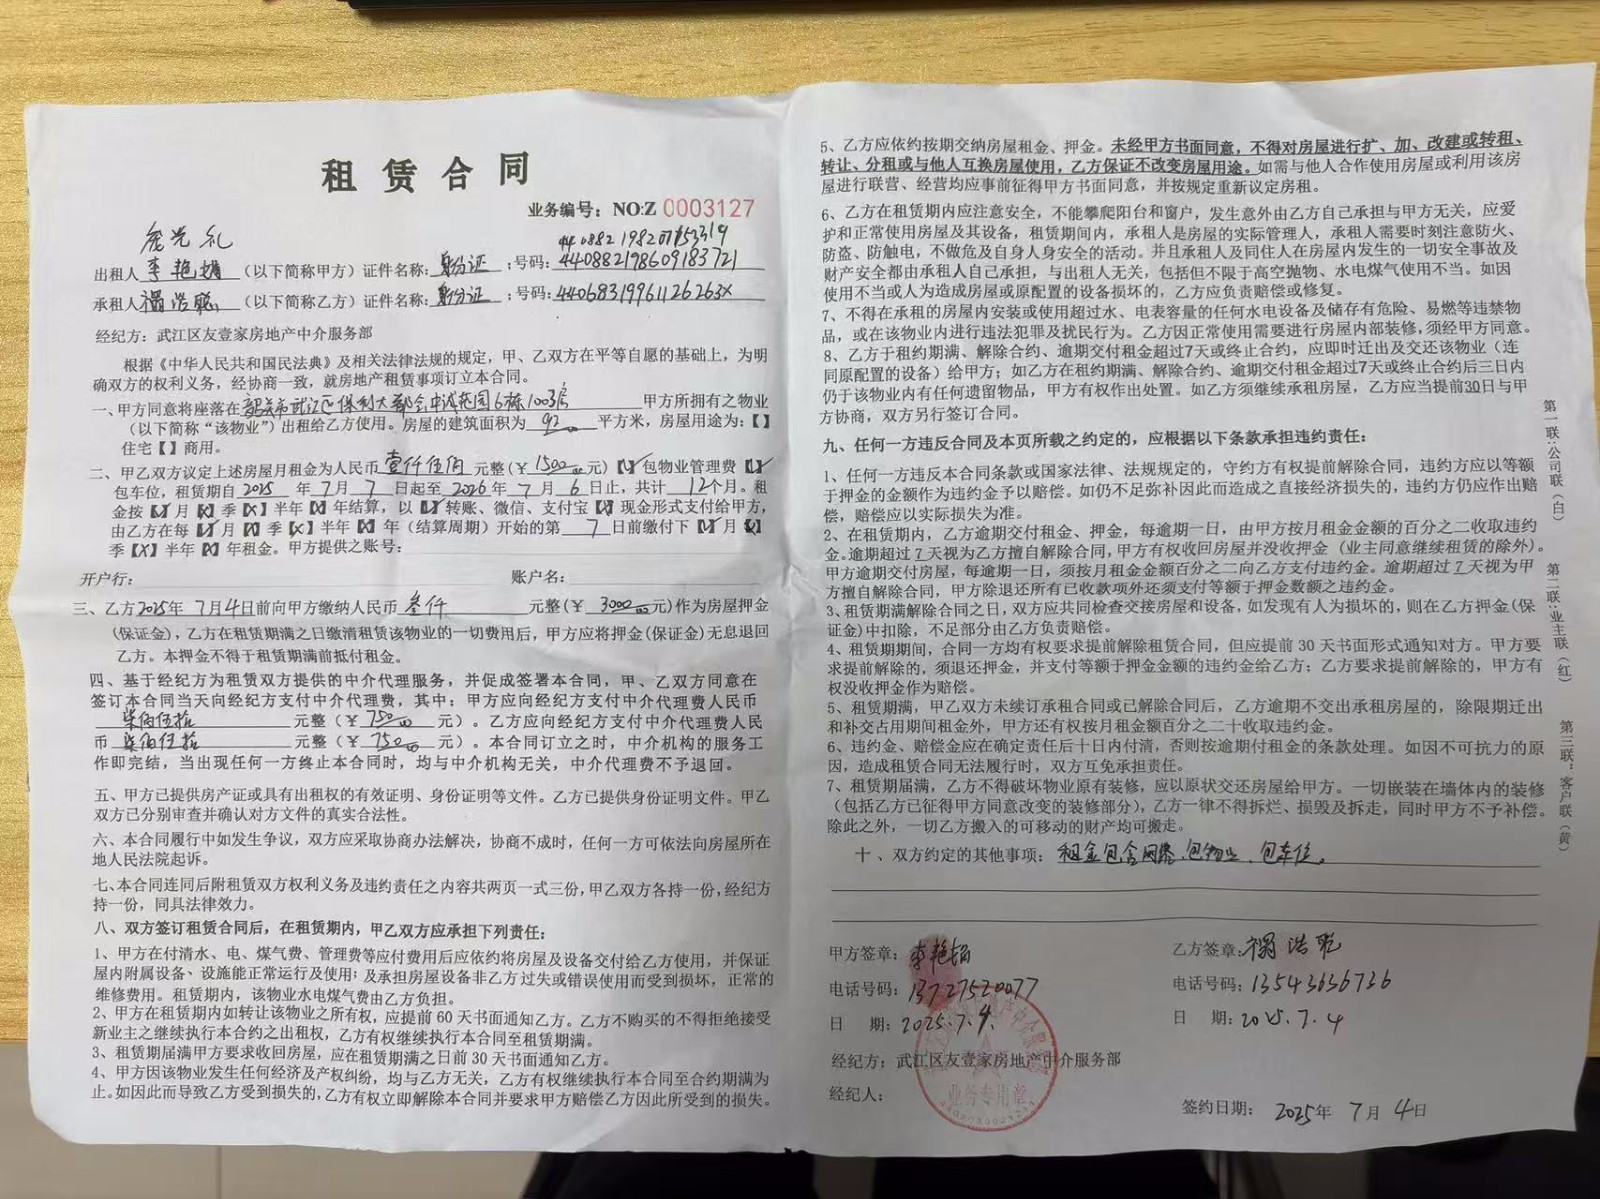 租赁合同
业务编号：NO:Z 0003127
出租人 李艳娟 （以下简称甲方）证件名称：身份证；号码：440882198609183721
承租人 禤浩聪 （以下简称乙方）证件名称：身份证；号码：44068319961126263X
经纪方：武江区友壹家房地产中介服务部
根据《中华人民共和国民法典》及相关法律法规的规定，甲、乙双方在平等自愿的基础上，为明
确双方的权利义务，经协商一致，就房地产租赁事项订立本合同。
一、甲方同意将座落在韶关市武江区保利大都会中诚花园6栋1003房 甲方所拥有之物业
（以下简称“该物业”）出租给乙方使用。房屋的建筑面积为 92 平方米，房屋用途为：【】
住宅【】商用。
二、甲乙双方议定上述房屋月租金为人民币 壹仟伍佰 元整（￥1500元）【√】包物业管理费【√】
包车位，租赁期自 2025 年 7 月 7 日起至 2026 年 7 月 6 日止，共计 12 个月。租
金按【√】月【X】季【X】半年【X】年结算，以【√】转账、微信、支付宝【X】现金形式支付给甲方，
由乙方在每【√】月【X】季【X】半年【X】年（结算周期）开始的第 7 日前缴付下【√】月【X】
季【X】半年【X】年租金。甲方提供之账号：
开户行： 账户名：
三、乙方2025年 7月4日前向甲方缴纳人民币 叁仟 元整（￥ 3000元）作为房屋押金
（保证金），乙方在租赁期满之日缴清租赁该物业的一切费用后，甲方应将押金（保证金）无息退回
乙方。本押金不得于租赁期满前抵付租金。
四、基于经纪方为租赁双方提供的中介代理服务，并促成签署本合同，甲、乙双方同意在
签订本合同当天向经纪方支付中介代理费，其中：甲方应向经纪方支付中介代理费人民币
柒佰伍拾 元整（￥ 750 元）。乙方应向经纪方支付中介代理费人民
币 柒佰伍拾 元整（￥ 750 元）。本合同订立之时，中介机构的服务工
作即完结，当出现任何一方终止本合同时，均与中介机构无关，中介代理费不予退回。
五、甲方已提供房产证或具有出租权的有效证明、身份证明等文件。乙方已提供身份证明文件。甲乙
双方已分别审查并确认对方文件的真实合法性。
六、本合同履行中如发生争议，双方应采取协商办法解决，协商不成时，任何一方可依法向房屋所在
地人民法院起诉。
七、本合同连同后附租赁双方权利义务及违约责任之内容共两页一式三份，甲乙双方各持一份，经纪方
持一份，同具法律效力。
八、双方签订租赁合同后，在租赁期内，甲乙双方应承担下列责任：
1、甲方在付清水、电、煤气费、管理费等应付费用后应依约将房屋及设备交付给乙方使用，并保证
屋内附属设备、设施能正常运行及使用；及承担房屋设备非乙方过失或错误使用而受到损坏，正常的
维修费用。租赁期内，该物业水电煤气费由乙方负担。
2、甲方在租赁期内如转让该物业之所有权，应提前60天书面通知乙方。乙方不购买的不得拒绝接受
新业主之继续执行本合约之出租权，乙方有权继续执行本合同至租赁期满。
3、租赁期届满甲方要求收回房屋，应在租赁期满之日前30天书面通知乙方。
4、甲方因该物业发生任何经济及产权纠纷，均与乙方无关，乙方有权继续执行本合同至合约期满为
止。如因此而导致乙方受到损失的，乙方有权立即解除本合同并要求甲方赔偿乙方因此所受到的损失。
5、乙方应依约按期交纳房屋租金、押金。未经甲方书面同意，不得对房屋进行扩、加、改建或转租、
转让、分租或与他人互换房屋使用，乙方保证不改变房屋用途。如需与他人合作使用房屋或利用该房
屋进行联营、经营均应事前征得甲方书面同意，并按规定重新议定房租。
6、乙方在租赁期内应注意安全，不能攀爬阳台和窗户，发生意外由乙方自己承担与甲方无关，应爱
护和正常使用房屋及其设备，租赁期间内，承租人是房屋的实际管理人，承租人需要时刻注意防火、
防盗、防触电，不做危及自身人身安全的活动。并且承租人及同住人在房屋内发生的一切安全事故及
财产安全都由承租人自己承担，与出租人无关，包括但不限于高空抛物、水电煤气使用不当。如因
使用不当或人为造成房屋或原配置的设备损坏的，乙方应负责赔偿或修复。
7、不得在承租的房屋内安装或使用超过水、电表容量的任何水电设备及储存有危险、易燃等违禁物
品，或在该物业内进行违法犯罪及扰民行为。乙方因正常使用需要进行房屋内部装修，须经甲方同意。
8、乙方于租约期满、解除合约、逾期交付租金超过7天或终止合约，应即时迁出及交还该物业（连
同原配置的设备）给甲方；如乙方在租约期满、解除合约、逾期交付租金超过7天或终止合约后三日内
仍于该物业内有任何遗留物品，甲方有权作出处置。如乙方须继续承租房屋，乙方应当提前30日与甲
方协商，双方另行签订合同。
九、任何一方违反合同及本页所载之约定的，应根据以下条款承担违约责任：
1、任何一方违反本合同条款或国家法律、法规规定的，守约方有权提前解除合同，违约方应以等额
于押金的金额作为违约金予以赔偿。如仍不足弥补因此而造成之直接经济损失的，违约方仍应作出赔
偿，赔偿应以实际损失为准。
2、在租赁期内，乙方逾期交付租金、押金，每逾期一日，由甲方按月租金金额的百分之二收取违约
金。逾期超过7天视为乙方擅自解除合同，甲方有权收回房屋并没收押金（业主同意继续租赁的除外）。
甲方逾期交付房屋，每逾期一日，须按月租金金额百分之二向乙方支付违约金。逾期超过7天视为甲
方擅自解除合同，甲方除退还所有已收款项外还须支付等额于押金数额之违约金。
3、租赁期满解除合同之日，双方应共同检查交接房屋和设备，如发现有人为损坏的，则在乙方押金（保
证金）中扣除，不足部分由乙方负责赔偿。
4、租赁期期间，合同一方均有权要求提前解除租赁合同，但应提前30天书面形式通知对方。甲方要
求提前解除的，须退还押金，并支付等额于押金金额的违约金给乙方；乙方要求提前解除的，甲方有
权没收押金作为赔偿。
5、租赁期满，甲乙双方未续订承租合同或已解除合同后，乙方逾期不交出承租房屋的，除限期迁出
和补交占用期间租金外，甲方还有权按月租金额百分之二十收取违约金。
6、违约金、赔偿金应在确定责任后十日内付清，否则按逾期付租金的条款处理。如因不可抗力的原
因，造成租赁合同无法履行时，双方互免承担责任。
7、租赁期届满，乙方不得破坏物业原有装修，应以原状交还房屋给甲方。一切嵌装在墙体内的装修
（包括乙方已征得甲方同意改变的装修部分），乙方一律不得拆烂、损毁及拆走，同时甲方不予补偿。
除此之外，一切乙方搬入的可移动的财产均可搬走。
十、双方约定的其他事项：租金包含网费、包物业、包车位。
甲方签章：李艳娟
电话号码：13727520077
日 期：2025.7.4.
乙方签章：禤浩聪
电话号码：13543636736
日 期：2025.7.4
经纪方：武江区友壹家房地产中介服务部
经纪人：
业务专用章
签约日期： 2025年 7月 4日
第一联：公司联（白）
第二联：业主联（红）
第三联：客户联（黄）